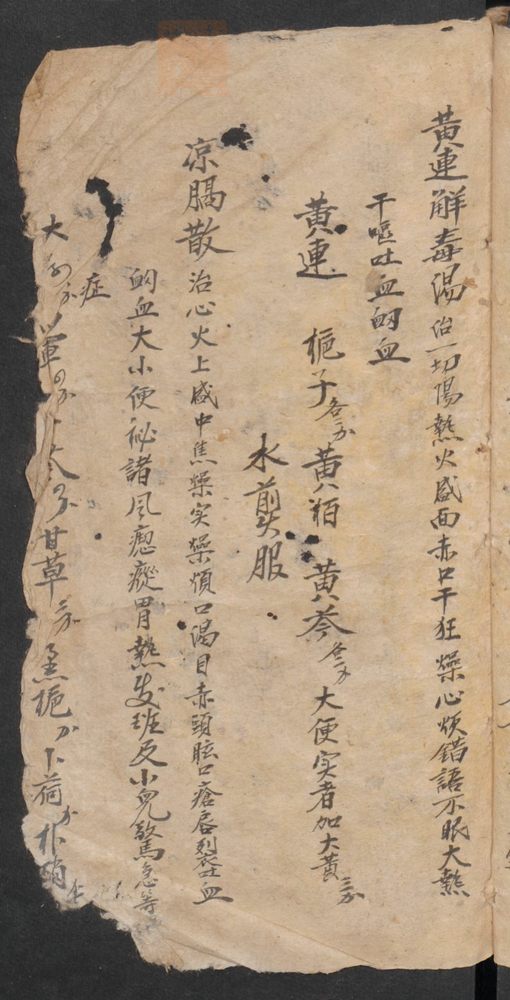 黄連觧毒湯治一切陽熱火盛面赤口干狂燥心烦錯語不眠大熱
干嘔吐血衂血
黄連 梔子各 黄栢 黄芩 大便实者加大黄
水煎服
凉膈散治心火上盛中焦燥实燥煩口渴目赤頭眩口瘡唇裂吐血
衂血大小便秘諸風瘛瘲胃熱发班及小兒驚急等
症
大 軍 甘草 梔 卜荷 朴硝